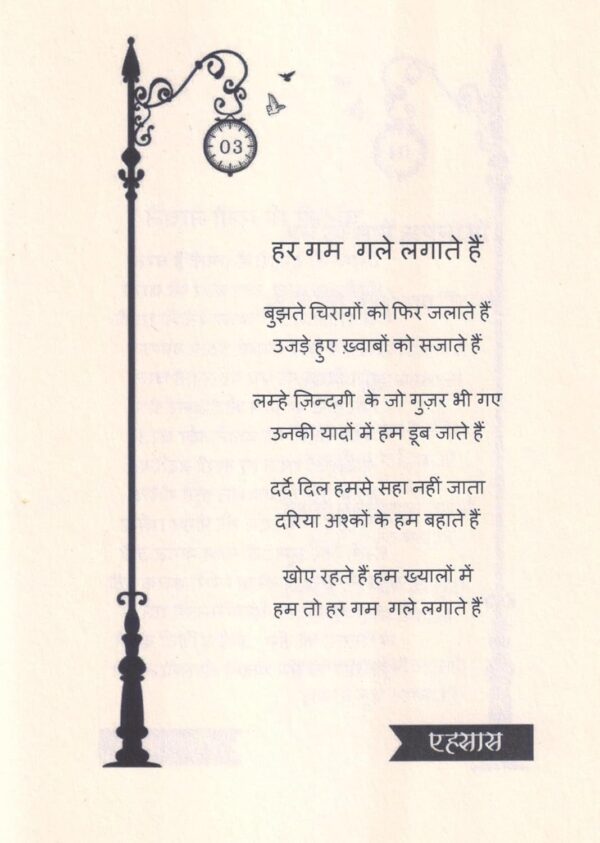 03
हर गम  गले लगाते हैं
बुझते चिराग़ों को फिर जलाते हैं
उजड़े हुए ख़्वाबों को सजाते हैं
लम्हे ज़िन्दगी  के जो गुज़र भी गए
उनकी यादों में हम डूब जाते हैं
दर्दे दिल हमसे सहा नहीं जाता
दरिया अश्कों के हम बहाते हैं
खोए रहते हैं हम ख्यालों में
हम तो हर गम  गले लगाते हैं
एहसास